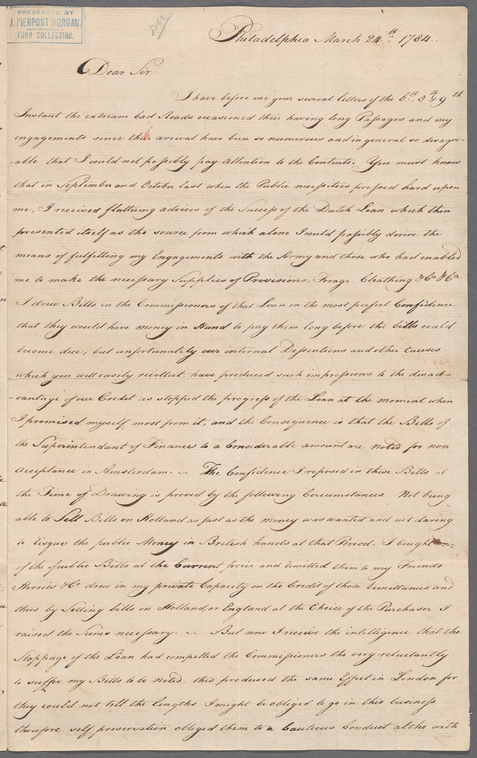 PRESENTED BY
J. PIERPONT MORGAN.
FORD COLLECTION.
Philadelphia March 24th 1784.
Dear Sir
I have before me your several letters of the 6th 8th & 9th
Instant the extream bad Roads occasioned their having long Passages and my
engagements since their arrival have been so numerous and in general so disagre-
-able that I could not possibly pay attention to the Contents. You must know
that in September and October last when the Public necessities pressed hard upon
me, I received flattering advices of the Success of the Dutch Loan which then
presented itself as the source from which alone I could possibly derive the
means of fulfilling my Engagements with the Army and those who had enabled
me to make the necessary Supplies of Provisions, Forage Cloathing &ca &ca
I drew Bills on the Commissioners of that Loan in the most perfect Confidence
that they would have money in Hand to pay them long before the bills could
become due, but unfortunately our internal Dissentions and other causes
which you will easily recollect have produced such impressions to the disad-
-vantage of our Credit as stopped the progress of the Loan at the moment when
I promised myself most from it, and the Consequence is that the Bills of
the Superintendant of Finance to a Considerable amount are noted for non
acceptance in Amsterdam. The Confidence I reposed in these Bills at
the Time of Drawing is proved by the following Circumstances Not being
able to Sell Bills on Holland as fast as the money was wanted and not daring
to risque the public Money in British hands at that Period. I bought
of the public Bills at the Current price and remitted them to my Friends
Herries &Co drew in my private Capacity on the Credit of those remittances and
thus by Selling bills on Holland or England at the Choice of the Purchaser I
raised the Sums necessary. But now I receive the intelligence that the
Stoppage of the Loan had compelled the Commissioners tho very reluctantly
to suffer my Bills to be Noted, this produced the same Effect in London for
they could not tell the lengths I might be obliged to go in this business
therefore self preservation obliged them to a Cautious Conduct altho with